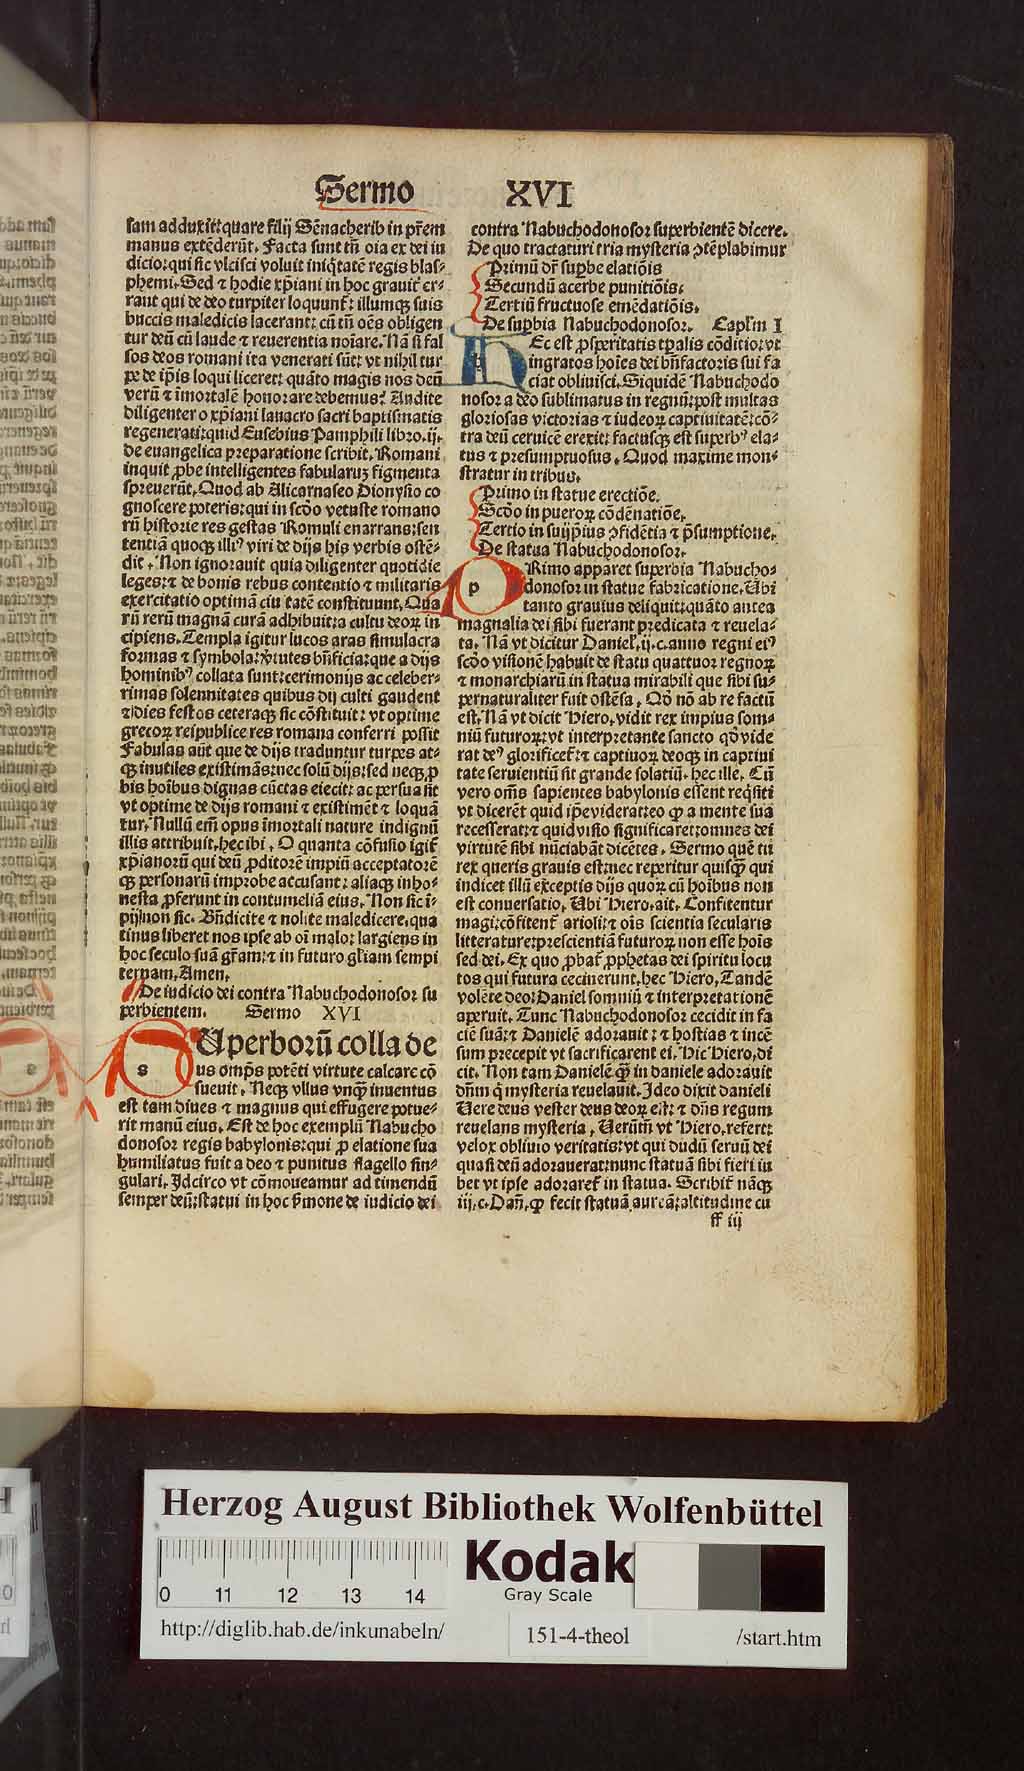 Sermo XVI
sam adduxit: quare filij Sēnacherib in pr̄em
manus extēderūt. Facta sunt tn̄ oīa ex dei iu
dicio: qui sic vlcisci voluit iniq̄tatē regis blas-
phemi. Sed ⁊ hodie xp̄iani in hoc grauit̄ er-
rant qui de deo turpiter loquunt̄: illumqꝫ suis
buccis maledicis lacerant: cū tn̄ oēs obligen
tur deū cū laude ⁊ reuerentia noīare. Nā si fal
sos deos romani ita venerati sūt: vt nihil tur
pe de ip̄is loqui liceret: quāto magis nos deū
verū ⁊ īmortalē honorare debemus? Audite
diligenter o xp̄iani lauacro sacri baptismatis
regenerati: quid Eusebius Pamphili libro. ij.
de euangelica preparatione scribit. Romani
inquit ꝓbe intelligentes fabularuꝫ figmenta
spreuerūt. Quod ab Alicarnaseo Dionysio co
gnoscere poteris: qui in scd̄o vetuste romano
rū historie res gestas Romuli enarrans: sen
tentiā quoqꝫ illiꝰ viri de dijs his verbis ostē-
dit. Non ignorauit quia diligenter quotidie
leges: ⁊ de bonis rebus contentio ⁊ militaris
exercitatio optimā ciuitatē constituunt. Qua
rū rerū magnā curā adhibuit: a cultu deoꝝ in
cipiens. Templa igitur lucos aras simulacra
formas ⁊ symbola: v̄tutes bn̄ficia: que a dijs
hominibꝰ collata sunt: cerimonijs ac celeber-
rimas solennitates quibus dij culti gaudent
⁊ dies festos ceteraqꝫ sic cōstituit: vt optime
grecoꝝ reipublice res romana conferri possit
Fabulas aūt que de dijs traduntur turpes at-
qꝫ inutiles existimās: nec solū dijs: sed neqꝫ ꝓ
bis hoībus dignas cūctas eiecit: ac persuasit
vt optime de dijs romani ⁊ existimēt ⁊ loquā
tur. Nullū em̄ opus īmortali nature indignū
illis attribuit. hec ibi. O quanta cōfusio igit̄
xp̄ianorū qui deū ꝓditorē impiū acceptatorē
qꝫ personarū improbe accusant: aliaqꝫ inho-
nesta ꝓferunt in contumeliā eius. Non sic ī-
pij: non sic. Bn̄dicite ⁊ nolite maledicere. qua
tinus liberet nos ipse ab oī malo: largiens in
hoc seculo suā gr̄am: ⁊ in futuro gl̄iam sempi
ternam. Amen.
De iudicio dei contra Nabuchodonosor su
perbientem. Sermo XVI
s Uperborū colla de
us omp̄s potēti virtute calcare cō
sueuit. Neqꝫ vllus vnqꝫ̄ inuentus
est tam diues ⁊ magnus qui effugere potue-
rit manū eius. Est de hoc exemplū Nabucho
donosor regis babylonis: qui ꝓ elatione sua
humiliatus fuit a deo ⁊ punitus flagello sin-
gulari. Idcirco vt cōmoueamur ad timendū
semper deū: statui in hoc s̄mone de iudicio dei
contra Nabuchodonosor superbientē dicere.
De quo tractaturi tria mysteria ꝯtēplabimur
Primū dr̄ suꝑbe elatiōis
Secundū acerbe punitiōis.
Tertiū fructuose emēdatiōis.
De suꝑbia Nabuchodonosor. Capl'm I
h Ec est ꝓsperitatis tꝑalis cōditio: vt
ingratos hoīes dei bn̄factoris sui fa
ciat obliuisci. Siquidē Nabuchodo
nosor a deo sublimatus in regnū: post multas
gloriosas victorias ⁊ iudeoꝝ captiuitatē: cō-
tra deū ceruicē erexit: factusqꝫ est superbꝰ ela-
tus ⁊ presumptuosus. Quod maxime mon-
stratur in tribus.
Primo in statue erectiōe.
Scd̄o in pueroꝝ cōdēnatiōe.
Tertio in suijp̄ius ꝯfidētia ⁊ p̄sumptione.
De statua Nabuchodonosor.
p Rimo apparet superbia Nabucho-
donosor in statue fabricatione. Ubi
tanto grauius deliquit: quāto antea
magnalia dei sibi fuerant predicata ⁊ reuela-
ta. Nā vt dicitur Daniel. ij. c. anno regni eiꝰ
scd̄o visionē habuit de statu quattuor regnoꝝ
⁊ monarchiarū in statua mirabili que sibi su-
pernaturaliter fuit ostēsa. Qd̄ nō ab re factū
est. Nā vt dicit Hiero. vidit rex impius som-
niū futuroꝝ: vt interpretante sancto qd̄ vide
rat deꝰ glorificet̄: ⁊ captiuoꝝ deoqꝫ in captiui
tate seruientiū sit grande solatiū. hec ille. Cū
vero om̄s sapientes babylonis essent req̄siti
vt dicerēt quid ip̄e viderat: eo ꝙ a mente sua
recesserat: ⁊ quid visio significaret: omnes dei
virtutē sibi nūciabāt dicētes. Sermo quē tu
rex queris grauis est: nec reperitur quisqꝫ̄ qui
indicet illū exceptis dijs quoꝝ cū hoībus non
est conuersatio. Ubi Hiero. ait. Confitentur
magi: cōfitent̄ arioli: ⁊ oīs scientia secularis
litterature: prescientiā futuroꝝ non esse hoīs
sed dei. Ex quo ꝓbat̄ ꝓphetas dei spiritu locu
tos qui futura cecinerunt. hec Hiero. Tandē
volēte deo: Daniel somniū ⁊ interpretationē
aperuit. Tunc Nabuchodonosor cecidit in fa
ciē suā: ⁊ Danielē adorauit: ⁊ hostias ⁊ incē
sum precepit vt sacrificarent ei. Hic Hiero. di
cit. Non tam Danielē qꝫ̄ in daniele adorauit
dn̄m q̄ mysteria reuelauit. Ideo dixit danieli
Uere deus vester deus deoꝝ est: ⁊ dn̄s regum
reuelans mysteria. Uerūtn̄ vt Hiero. refert:
velox obliuio veritatis: vt qui dudū seruū dei
quasi deū adorauerat: nunc statuā sibi fieri iu
bet vt ipse adoraret̄ in statua. Scribit̄ nāqꝫ
iij. c. Dan̄. ꝙ fecit statuā aureā: altitudine cu
ff iij
Herzog August Bibliothek Wolfenbüttel
0 11 12 13 14
Kodak
Gray Scale
http://diglib.hab.de/inkunabeln/
151-4-theol
/start.htm